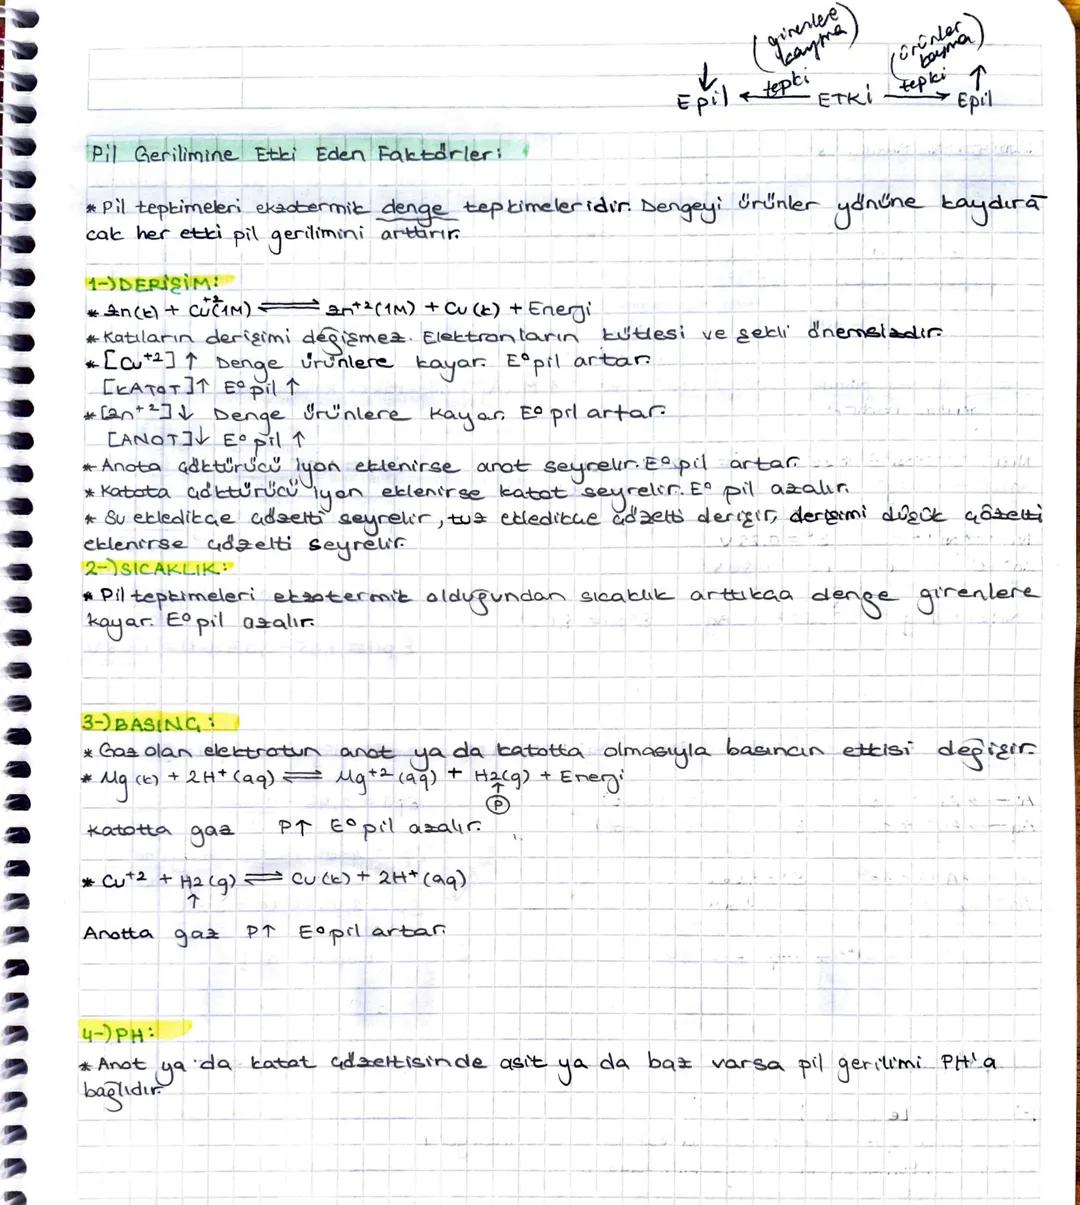 (girenlere kayma) (ürünler kayma)
↓ Epil ← tepki ETKİ tepki → Epil ↑
Pil Gerilimine Etki Eden Faktörler:
* Pil tepkimeleri ekzotermik denge tepkimeleridir. Dengeyi ürünler yönüne kaydıra
cak her etki pil gerilimini arttırır.
1-) DERİŞİM:
* Zn(k) + Cu+2(1M) ⇌ Zn+2(1M) + Cu(k) + Energi
* Katıların derişimi değişmez. Elektronların kütlesi ve şekli önemsizdir.
* [Cu+2]↑ Denge ürünlere kayar. E°pil artar.
[KATOT]↑ E°pil ↑
* [Zn+2]↓ Denge ürünlere kayar. E° pil artar.
[ANOT]↓ E° pil ↑
* Anota çöktürücü iyon eklenirse anot seyrelir. E° pil artar.
* Katota çöktürücü iyon eklenirse katot seyrelir. E° pil azalır.
* Su ekledikçe çözelti seyrelir, tuz ekledikçe çözelti derişir, derişimi düşük çözelti
eklenirse çözelti seyrelir.
2-) SICAKLIK:
* Pil tepkimeleri ekzotermik olduğundan sıcaklık arttıkça denge girenlere
kayar. E° pil azalır.
3-) BASINÇ:
* Gaz olan elektrotun anot ya da katotta olmasıyla basıncın etkisi değişir.
* Mg(k) + 2H+(aq) ⇌ Mg+2(aq) + H2(g) + Energi
↑
P
Katotta gaz P↑ E° pil azalır.
* Cu+2 + H2(g) ⇌ Cu(k) + 2H+(aq)
↑
Anotta gaz P↑ E° pil artar.
4-) PH:
* Anot ya da katot çözeltisinde asit ya da baz varsa pil gerilimi PH'a
bağlıdır.